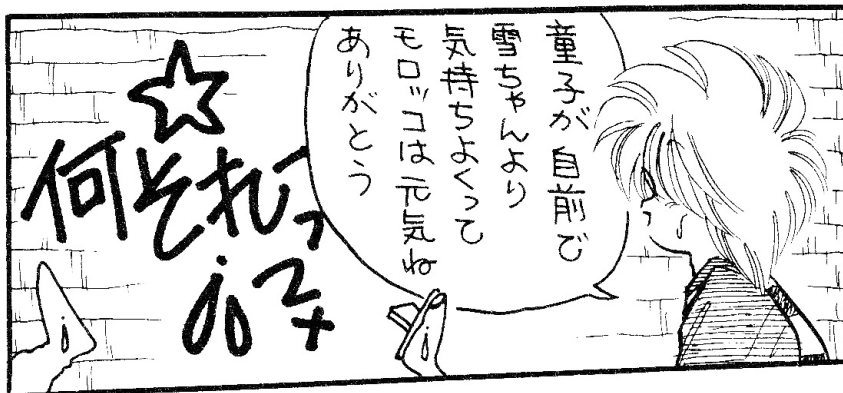 童子が自前で
雪ちゃんより
気持ちよくって
モロッコは元気ね
ありがとう
☆
何それっ